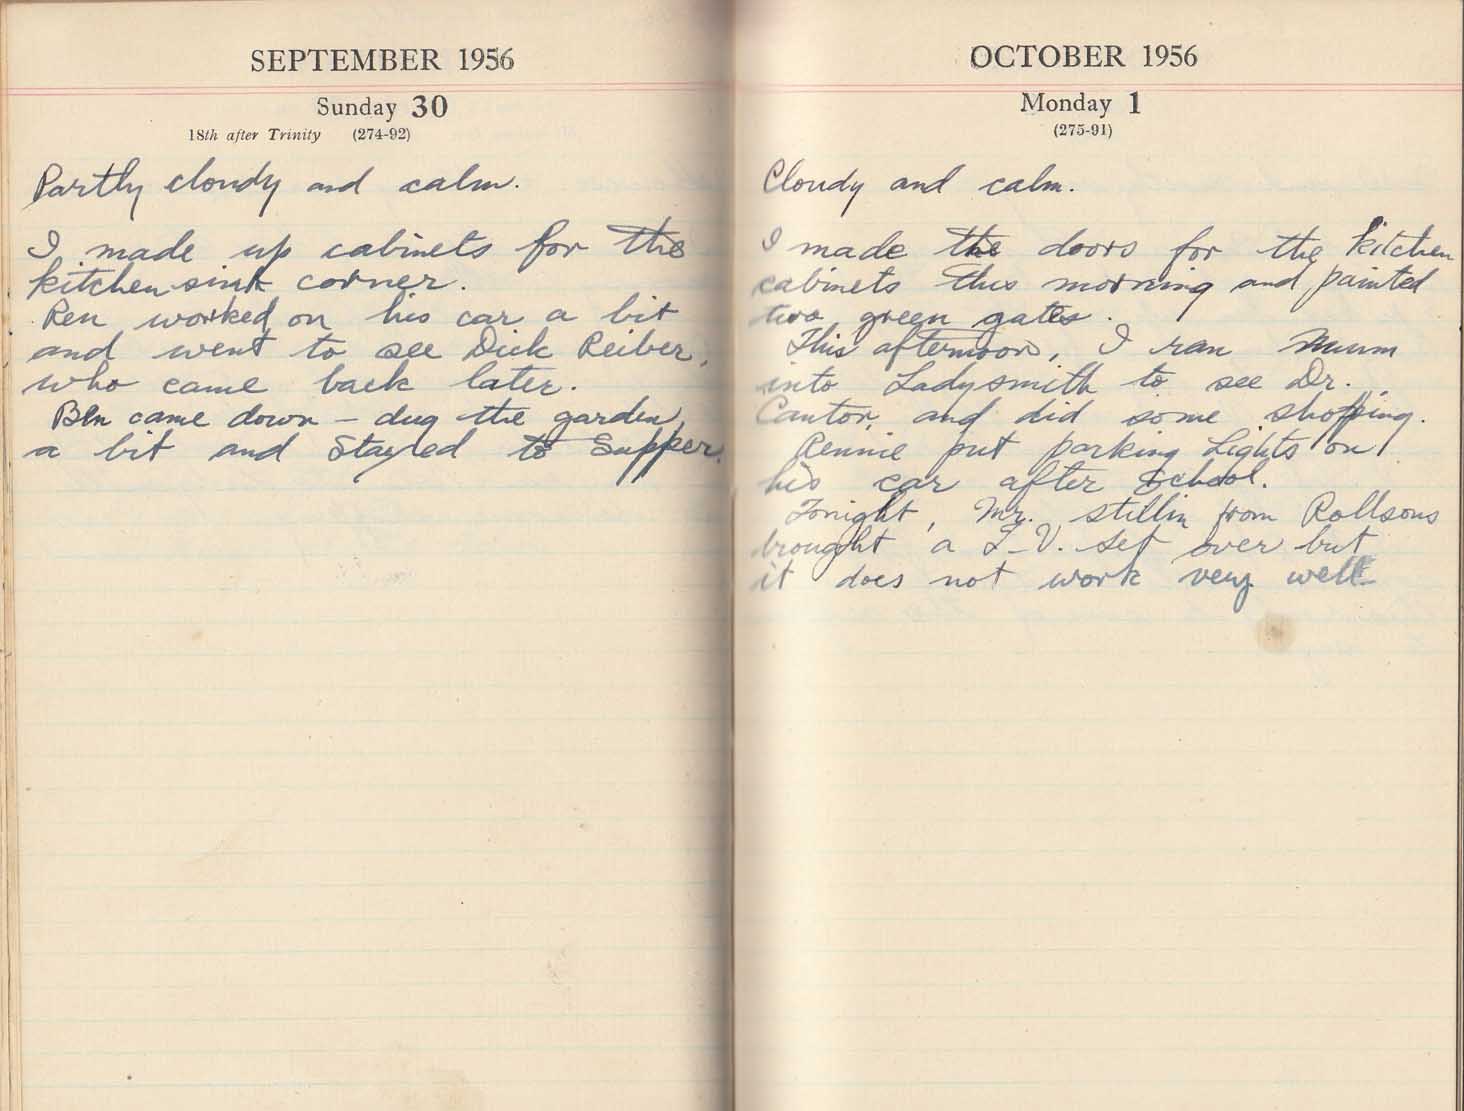 SEPTEMBER 1956
Sunday 30
18th after Trinity (274-92)
Partly cloudy and calm.
I made up cabinets for the
kitchen sink corner.
Ren worked on his car a bit
and went to see Dick Reiber,
who came back later.
Ben came down - dug the garden
a bit and stayed to Supper.
OCTOBER 1956
Monday 1
(275-91)
Cloudy and calm.
I made the doors for the kitchen
cabinets this morning and painted
two green gates.
This afternoon, I ran Mum
into Ladysmith to see Dr.
Cantor, and did some shopping.
Rennie put parking Lights on
his car after School.
Tonight, Mr. Stillin from Rollsons
brought a T-V. set over but
it does not work very well